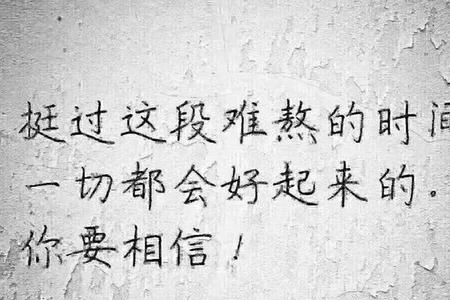 挺过这段难熬的时间
一切都会好起来的.
你要相信!